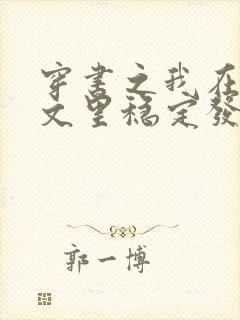 穿书之我在
文里稳定發
郭一博